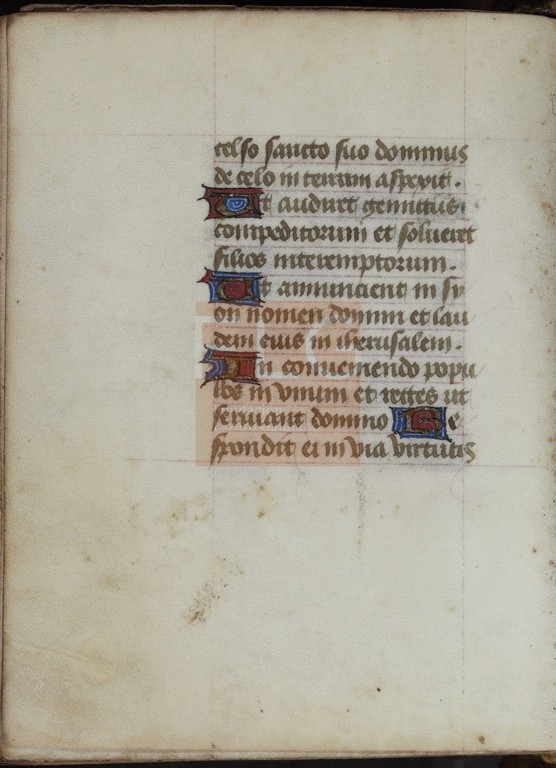 celso sancto suo dominus
de celo in terram aspexit.
Ut audiret gemitus
compeditorum et solueret
filios interemptorum.
Ut annuncient in sy
on nomen domini et lau
dem eius in iherusalem.
In conueniendo popu
los in vnum et reges ut
seruiant domino Re
spondit ei in via virtutis